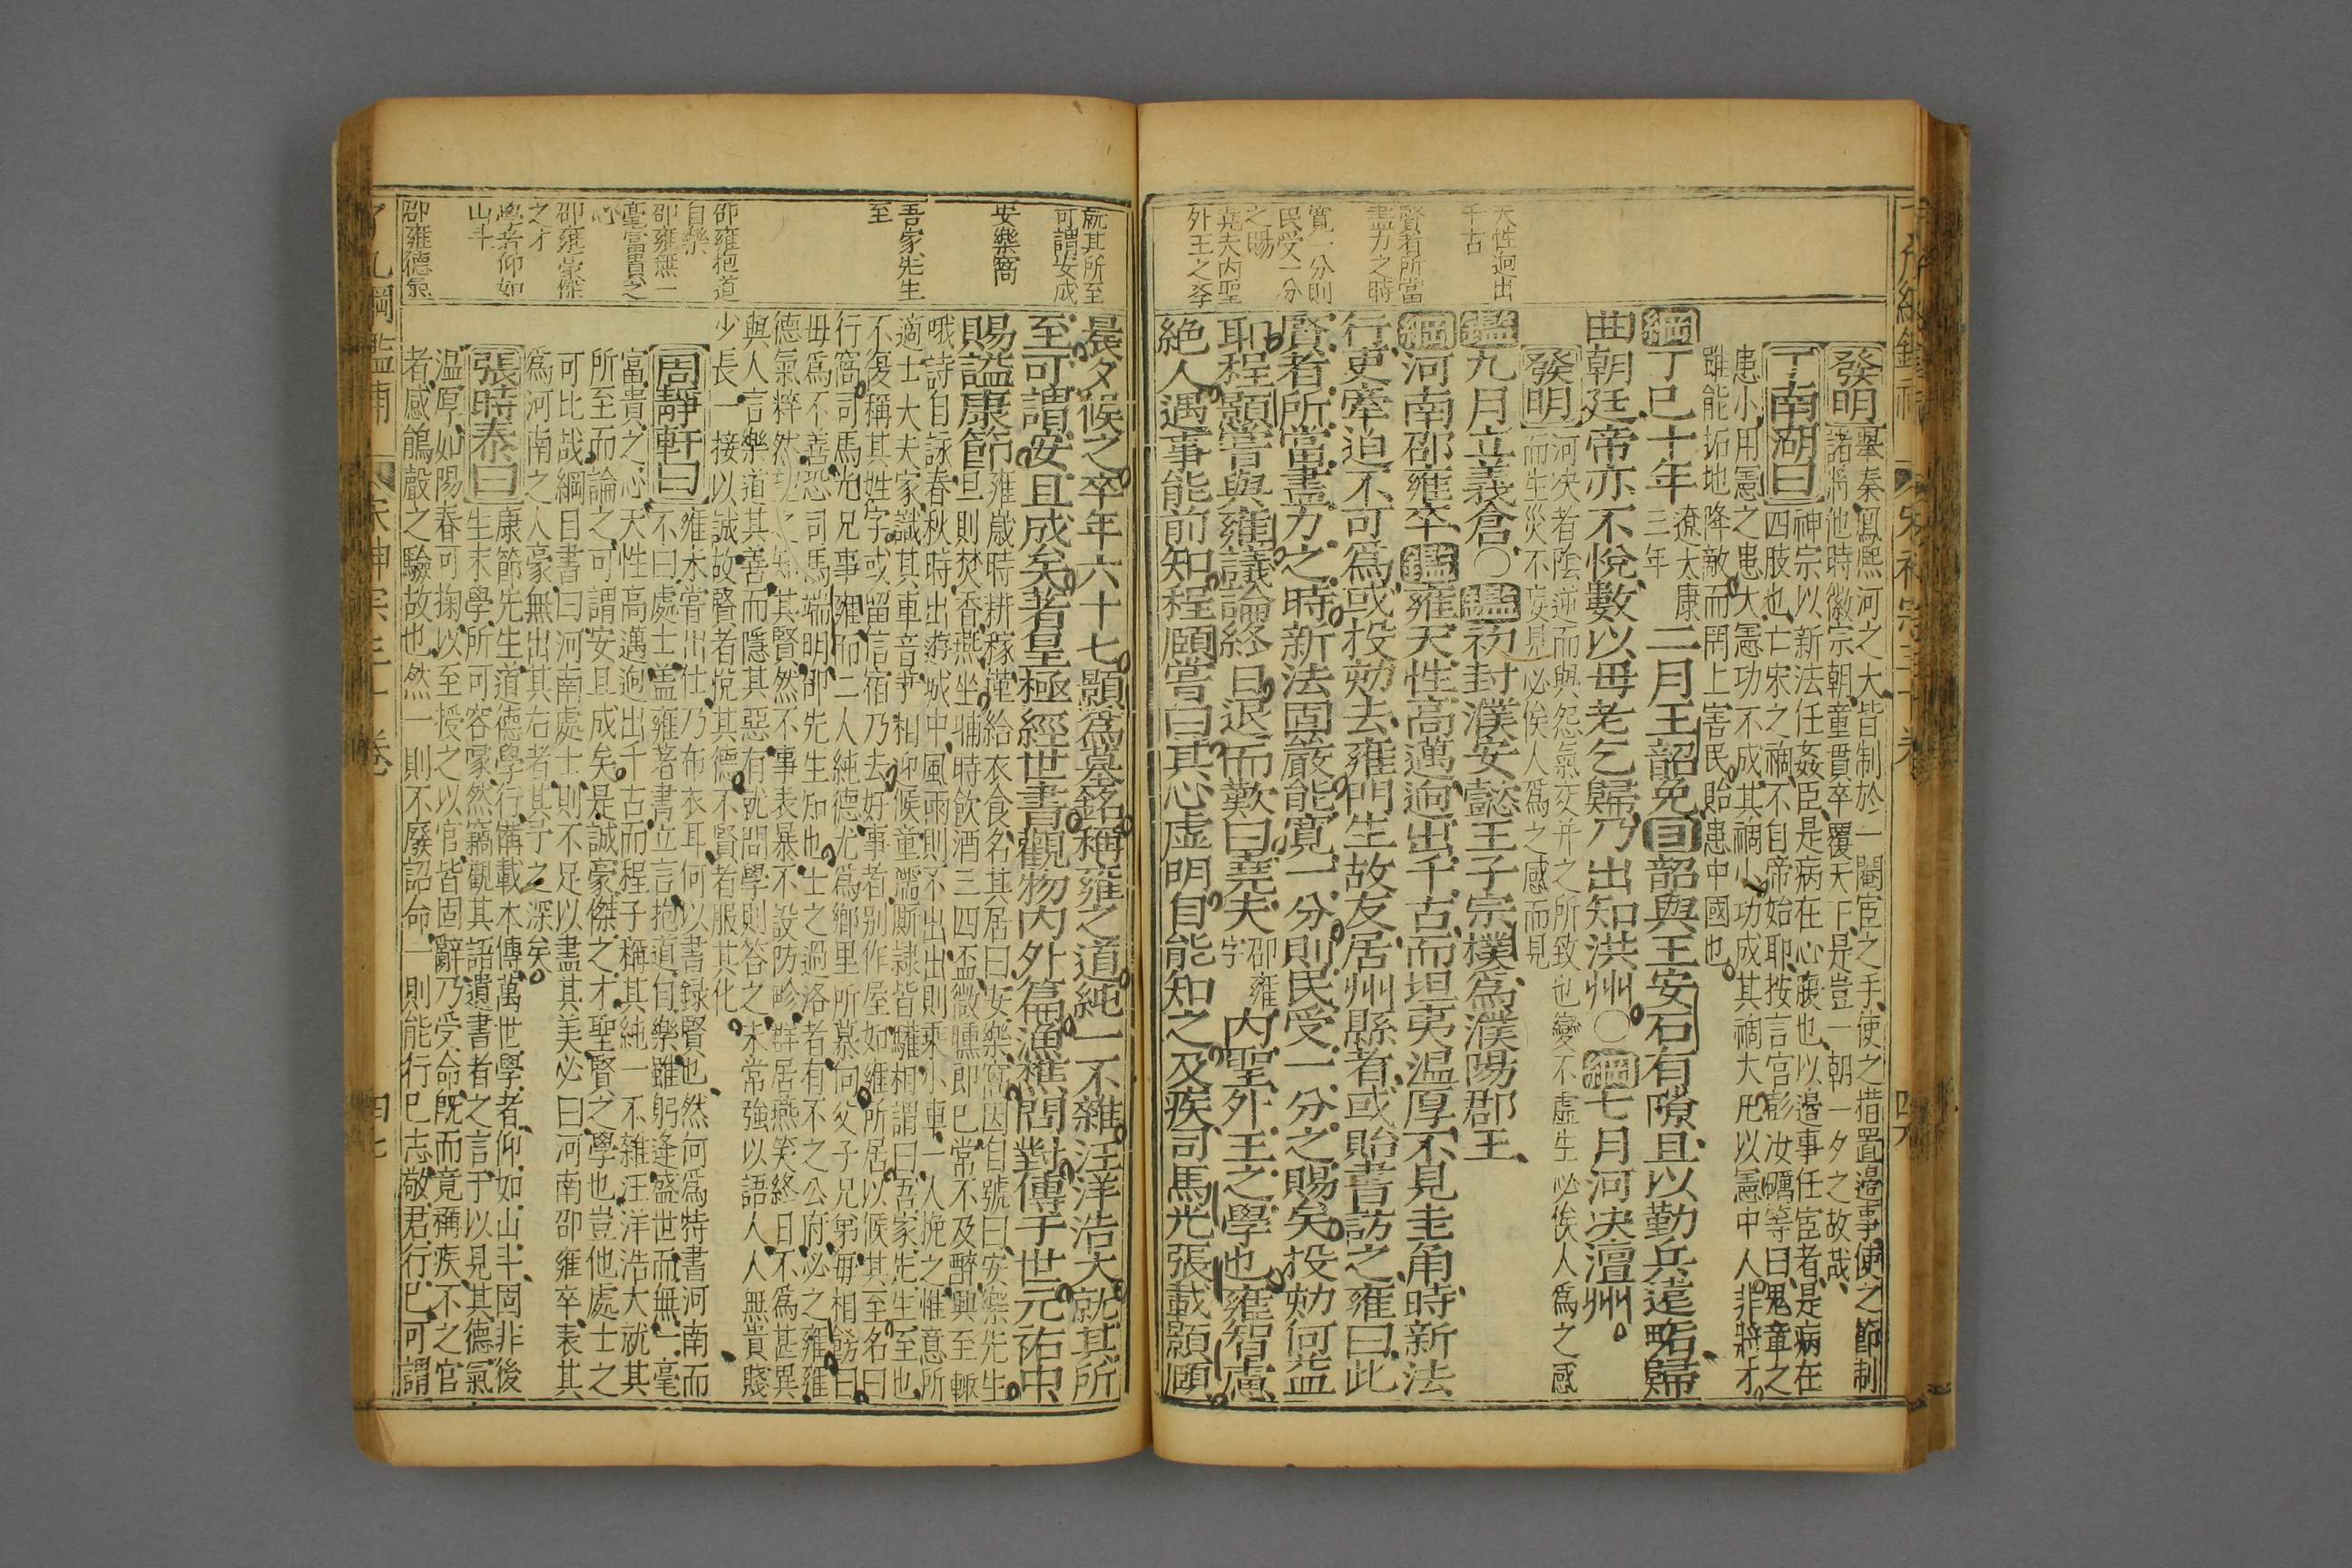 天性迥出
千古
賢者所當
盡力之時
寬一分則
民受一分
之賜
堯夫內聖
外王之學
發明
舉秦鳳熙河之大皆制於一閹宦之手使之措置邊事使之節制
諸將他時徽宗朝童貫卒覆天下是豈一朝一夕之故哉
丁南湖曰
神宗以新法任姦臣是病在心腹也以邊事任宦者是病在
四肢也亡宋之禍不自帝始耶按言官彭汝礪等曰鬼章之
患小用憲之患大憲功不成其禍小功成其禍大凡以憲中人非將才
雖能拓地降敵而罔上害民貽患中國也
綱丁巳十年遼太康三年二月王韶免目韶與王安石有隙且以勤兵遠略歸
曲朝廷帝亦不悅數以母老乞歸乃出知洪州〇綱七月河決澶州
發明
河決者陰逆而與怨氣交并之所致也變不虛生必俟人爲之感
而生災不妄見必俟人爲之感而見
鑑九月立義倉〇鑑初封濮安懿王子宗樸爲濮陽郡王
綱河南邵雍卒鑑雍天性高邁迥出千古而坦夷温厚不見圭角時新法
行吏牽迫不可爲或投劾去雍門生故友居州縣者或貽書訪之雍曰此
賢者所當盡力之時新法固嚴能寬一分則民受一分之賜矣投劾何益
耶程顥嘗與雍議論終日退而歎曰堯夫邵雍字內聖外王之學也雍智慮
絶人遇事能前知程頤嘗曰其心虛明自能知之及疾司馬光張載顥頤
就其所至
可謂安成
安樂窩
吾家先生
至
邵雍抱道
自樂
邵雍無一
毫富貴之
心
邵雍豪傑
之才
學者仰如
山斗
邵雍德氣
晨夕候之卒年六十七顥爲墓銘稱雍之道純一不雜汪洋浩大就其所
至可謂安且成矣著皇極經世書觀物內外篇漁樵問對傳于世元祐中
賜謚康節
雍歲時耕稼僅給衣食名其居曰安樂窩因自號曰安樂先生
旦則焚香燕坐晡時飲酒三四盃微醺即已常不及醉興至輒
哦詩自詠春秋時出遊城中風雨則不出出則乘小車一人挽之惟意所
適士大夫家識其車音爭相迎候童孺厮隷皆驩相謂曰吾家先生至也
不復稱其姓字或留信宿乃去好事者别作屋如雍所居以候其至名曰
行窩司馬光兄事雍而二人純德尤爲鄉里所慕向父子兄弟毎相飭曰
毋爲不善恐司馬端明邵先生知也士之過洛者有不之公府必之雍雍
德氣粹然望之知其賢然不事表暴不設防畛群居燕笑終日不爲甚異
與人言樂道其善而隱其惡有就問學則答之未常強以語人人無貴賤
少長一接以誠故賢者悅其德不賢者服其化
周靜軒曰
雍未嘗出仕乃布衣耳何以書録賢也然何爲特書河南而
不曰處士蓋雍著書立言抱道自樂雖躬逢盛世而無一毫
富貴之心天性高邁迥出千古而程子稱其純一不雜汪洋浩大就其
所至而論之可謂安且成矣是誠豪傑之才聖賢之學也豈他處士之
可比哉綱目書曰河南處士則不足以盡其美必曰河南邵雍卒表其
爲河南之人豪無出其右者其予之深矣
張時泰曰
康節先生道德學行備載本傳萬世學者仰如山斗固非後
生末學所可容喙然竊觀其語遺書者之言于以見其德氣
温厚如陽春可掬以至授之以官皆固辭乃受命旣而竟稱疾不之官
者感鵑聲之驗故也然一則不廢詔命一則能行已志敬君行已可謂